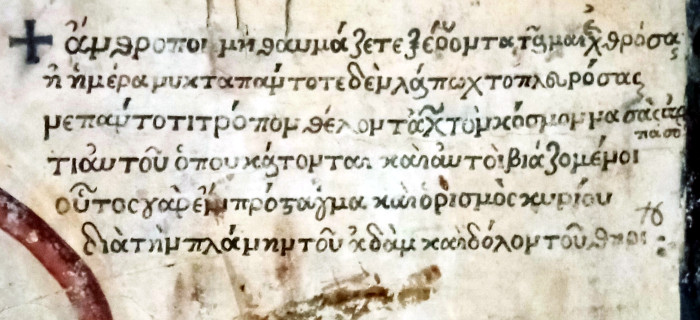 + ἄνθροποι μὴ θαυμάζετε ἐχθρόσας
ἡ ἡμέρα νυκτα παντοτε δὲν λάπω χτο πλευρόσας
με παντοτι τρόπον θέλοντα τὸν κόσμον να σὰς άρπασο
τι αυτοῦ ὁπου κάτονται καὶ αυτοὶ βιαζομένοι
οὗτος γὰρ ἔνι πρόσταγμα καὶ ὁρισμὸς κυρίου
διὰ τὴν πλάνην τοῦ ἀδὰμ καὶ δόλον τοῦ